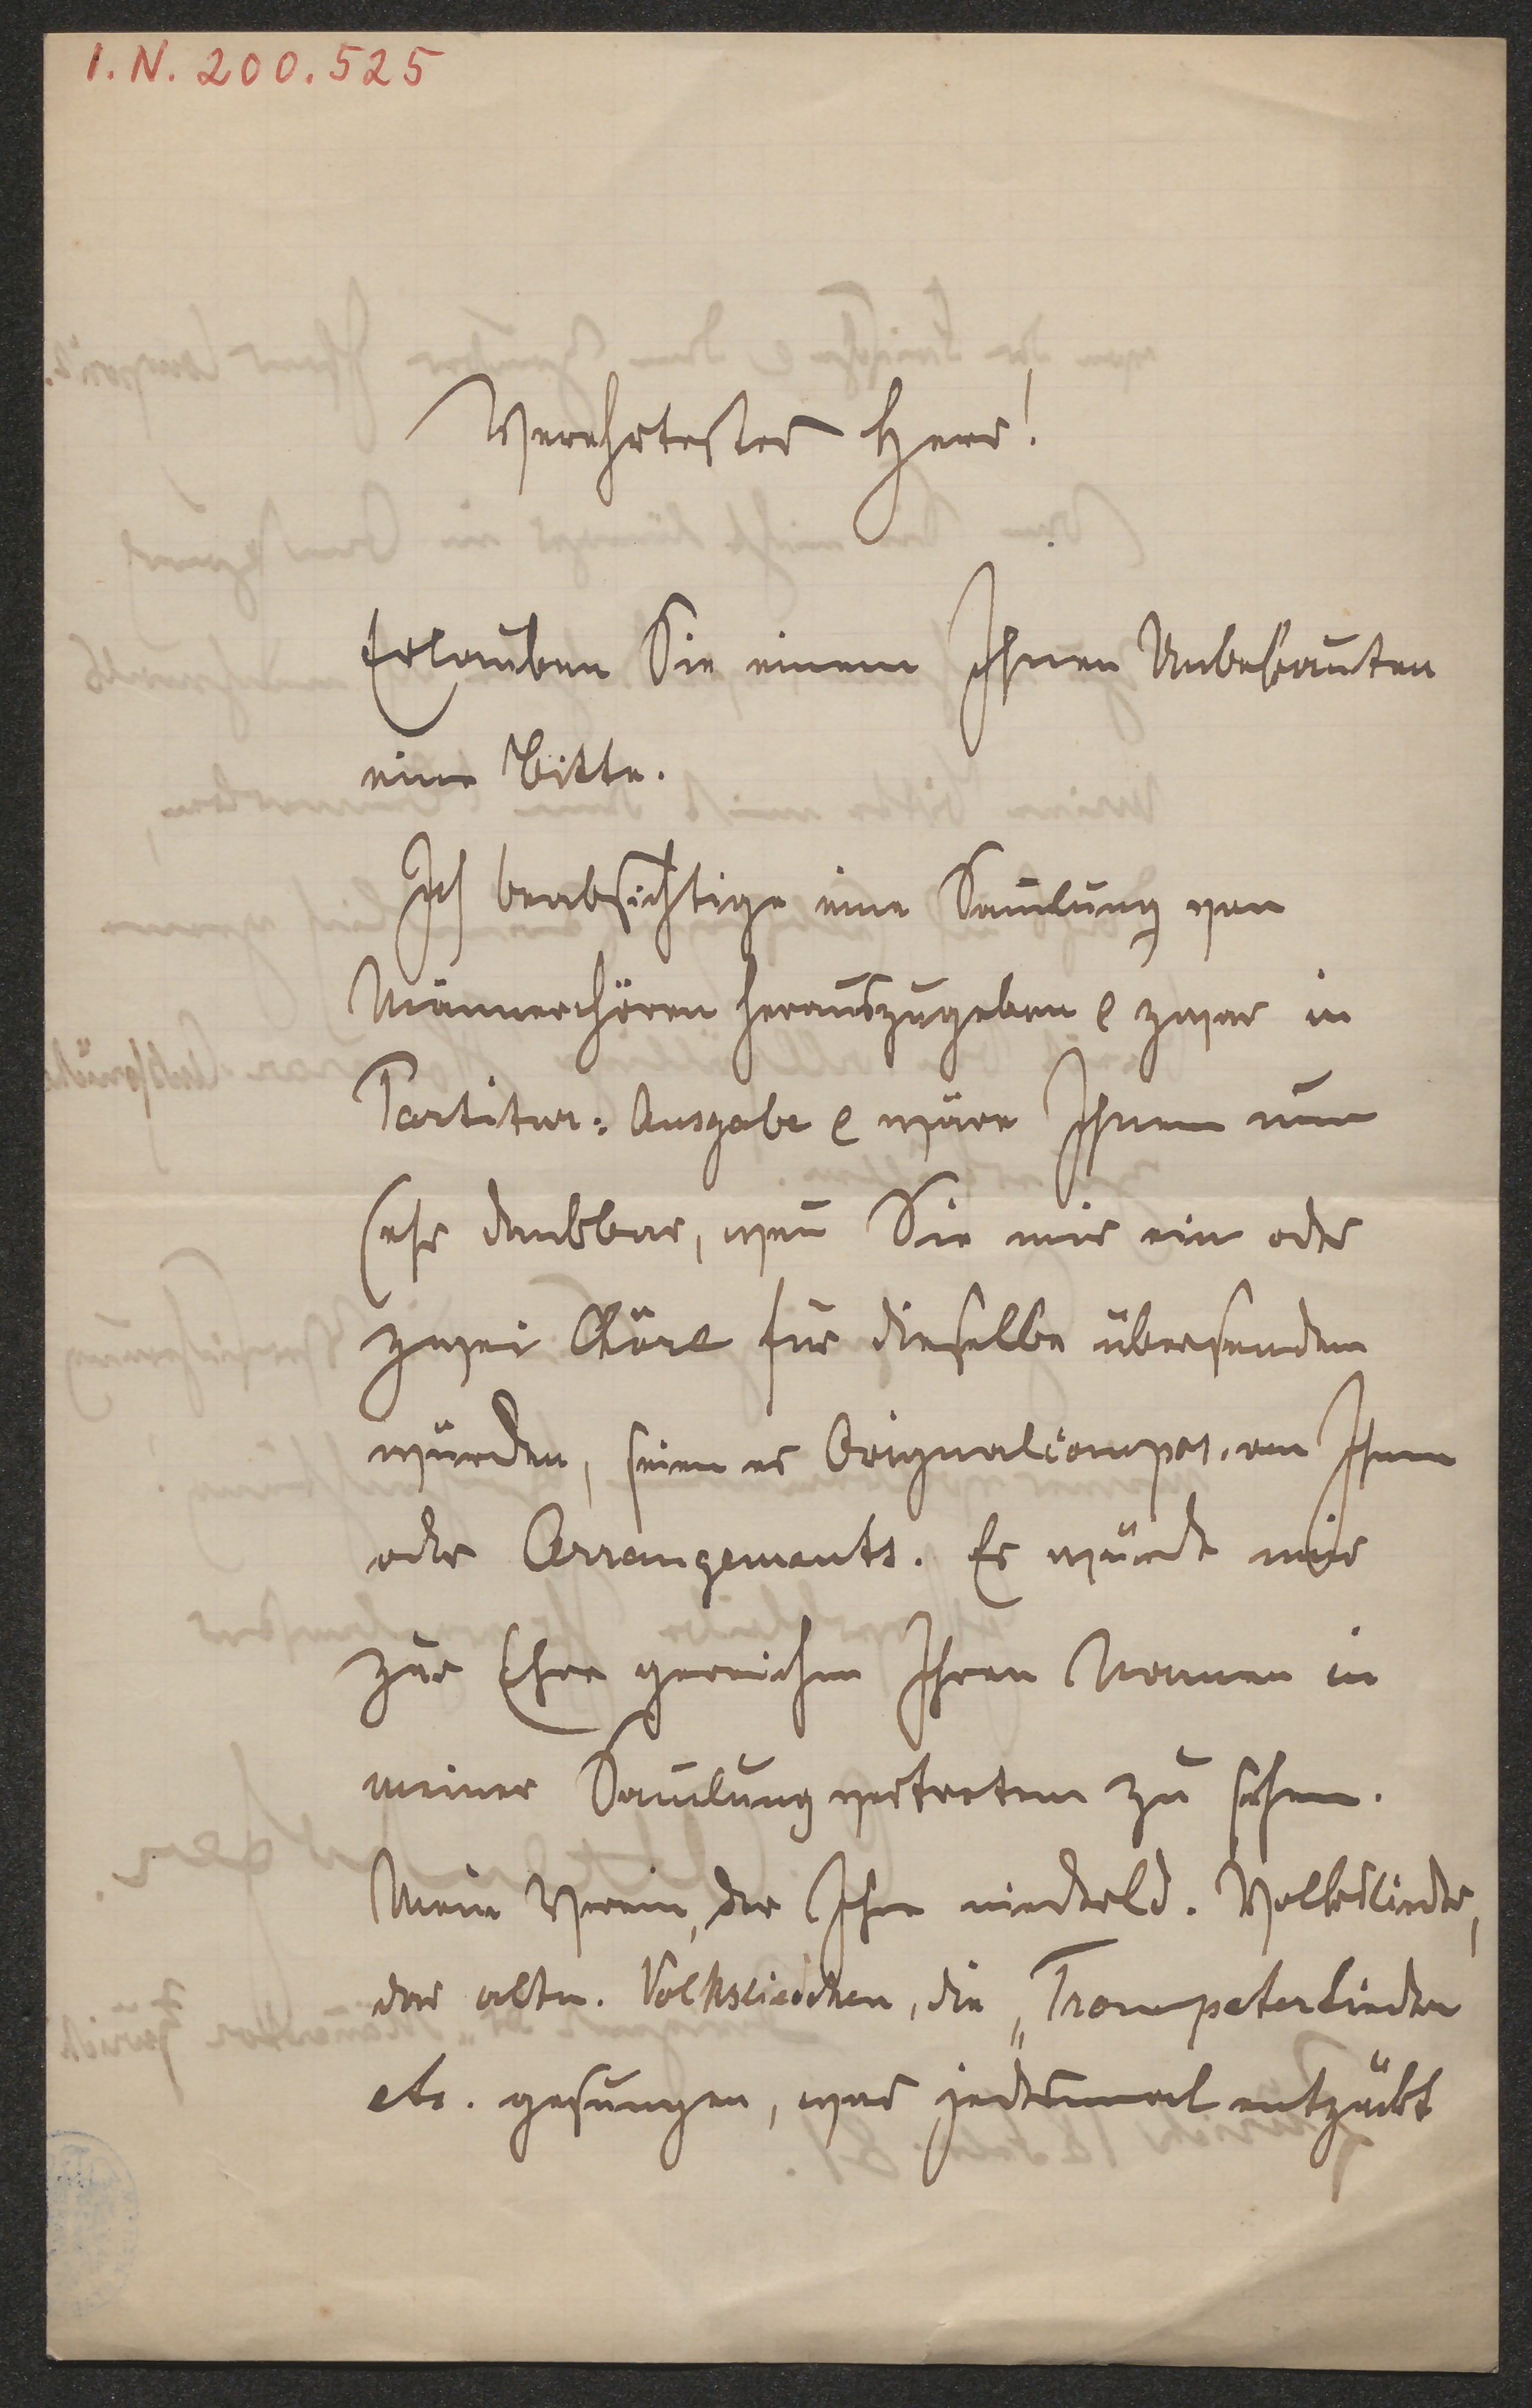 I.N. 200.525
Verehrtester Herr!
Erlauben Sie einem Ihnen Unbekannten
eine Bitte.
Ich beabsichtige eine Sam̅lung von
Männerchören herauszugeben & zwar in
Partitur-Ausgabe & wäre Ihnen nun
sehr dankbar, wen̅ Sie mir ein oder
zwei Chöre für dieselbe übersenden
würden, seien es Originalcompos. von Ihnen
oder Arrangements. Es würde mir
zur Ehre gereichen Ihren Namen in
meiner Sam̅lung vertreten zu sehen.
Mein Verein, der Ihre niederld. Volkslieder,
das altn. Volksliedchen, die „Trompeterlieder
etc. gesungen, war jedesmal entzückt